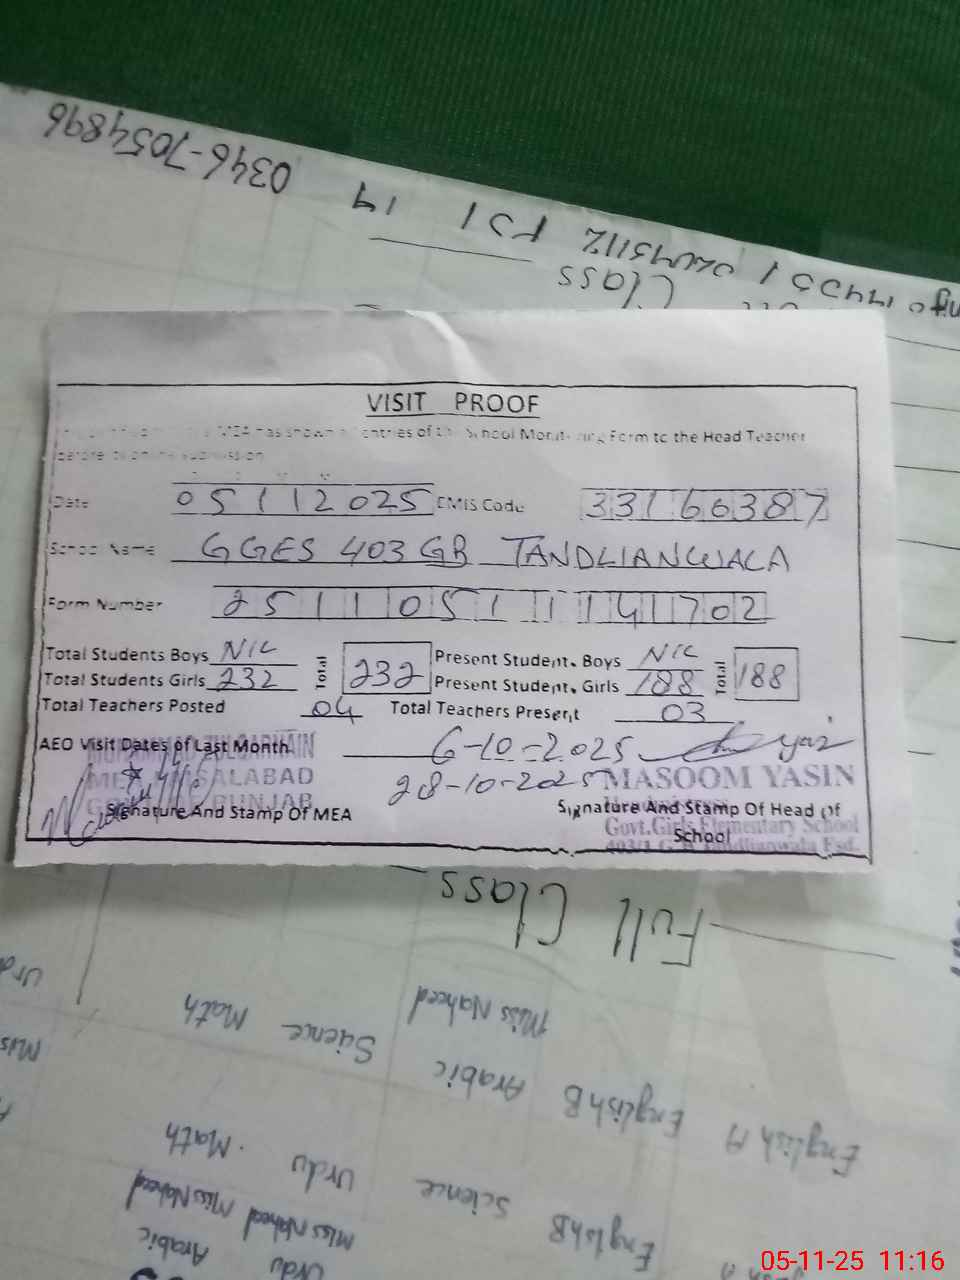 0346-7054896
14 151 FST
Class
VISIT PROOF
MEA has shown entries of the School Monitoring Form to the Head Teacher
before
Date 05112025 EMIS Code 33160387
School Name GGES 403 GB TANDLIANWALA
Form Number 25110511141702
Total Students Boys NIL Total 232 Present Student. Boys NIL Total 188
Total Students Girls 232 Present Student. Girls 188
Total Teachers Posted 04 Total Teachers Present 03
AEO Visit Dates of Last Month 6-10-2025
28-10-2025
MUHAMMAD ZULQARNAIN
FAISALABAD
PUNJAB
Signature And Stamp Of MEA
MASOOM YASIN
Signature And Stamp Of Head Of
School
Govt.Girls Elementary School
403/1 G.B Tandlianwala Fsd.
Full Class
Miss Naheed
English A English B Arabic Science Math Urdu
Miss
English B Science Urdu Math
Miss Naheed Miss Naheed Miss Naheed
Urdu Arabic
05-11-25 11:16